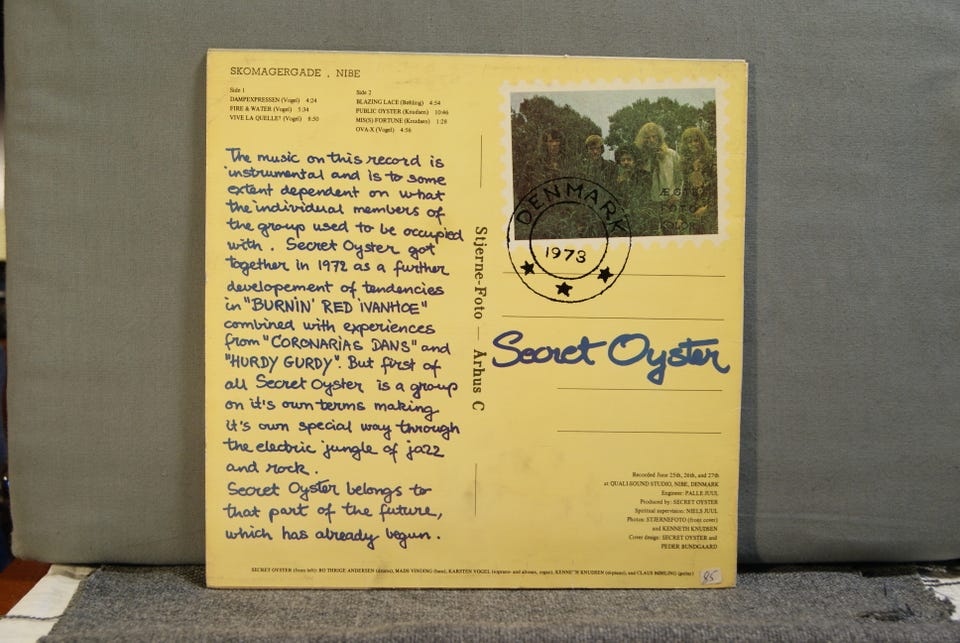 SKOMAGERGADE , NIBE
Side 1
DAMPEXPRESSEN (Vogel) 4:24
FIRE & WATER (Vogel) 5:34
VIVE LA QUELLE? (Vogel) 8:50
Side 2
BLAZING LACE (Bøhling) 4:54
PUBLIC OYSTER (Knudsen) 10:46
MIS(S) FORTUNE (Knudsen) 1:28
OVA-X (Vogel) 4:56
The music on this record is
instrumental and is to some
extent dependent on what
the individual members of
the group used to be occupied
with. Secret Oyster got
together in 1972 as a further
developement of tendencies
in "BURNIN' RED IVANHOE"
combined with experiences
from "CORONARIAS DANS" and
"HURDY GURDY". But first of
all Secret Oyster is a group
on it's own terms making
it's own special way through
the electric jungle of jazz
and rock.
Secret Oyster belongs to
that part of the future,
which has already begun.
Stjerne-Foto — Århus C
ÆGTE
FOTO
DENMARK
1973
Secret Oyster
Recorded June 25th, 26th, and 27th
at QUALI-SOUND STUDIO, NIBE, DENMARK
Engineer: PALLE JUUL
Produced by: SECRET OYSTER
Spiritual supervision: NIELS JUUL
Photos: STJERNEFOTO (front cover)
and KENNETH KNUDSEN
Cover design: SECRET OYSTER and
PEDER BUNDGAARD
SECRET OYSTER (from left): BO THRIGE ANDERSEN (drums), MADS VINDING (bass), KARSTEN VOGEL (soprano- and altosax, organ), KENNETH KNUDSEN (el-piano), and CLAUS BØHLING (guitar)
85